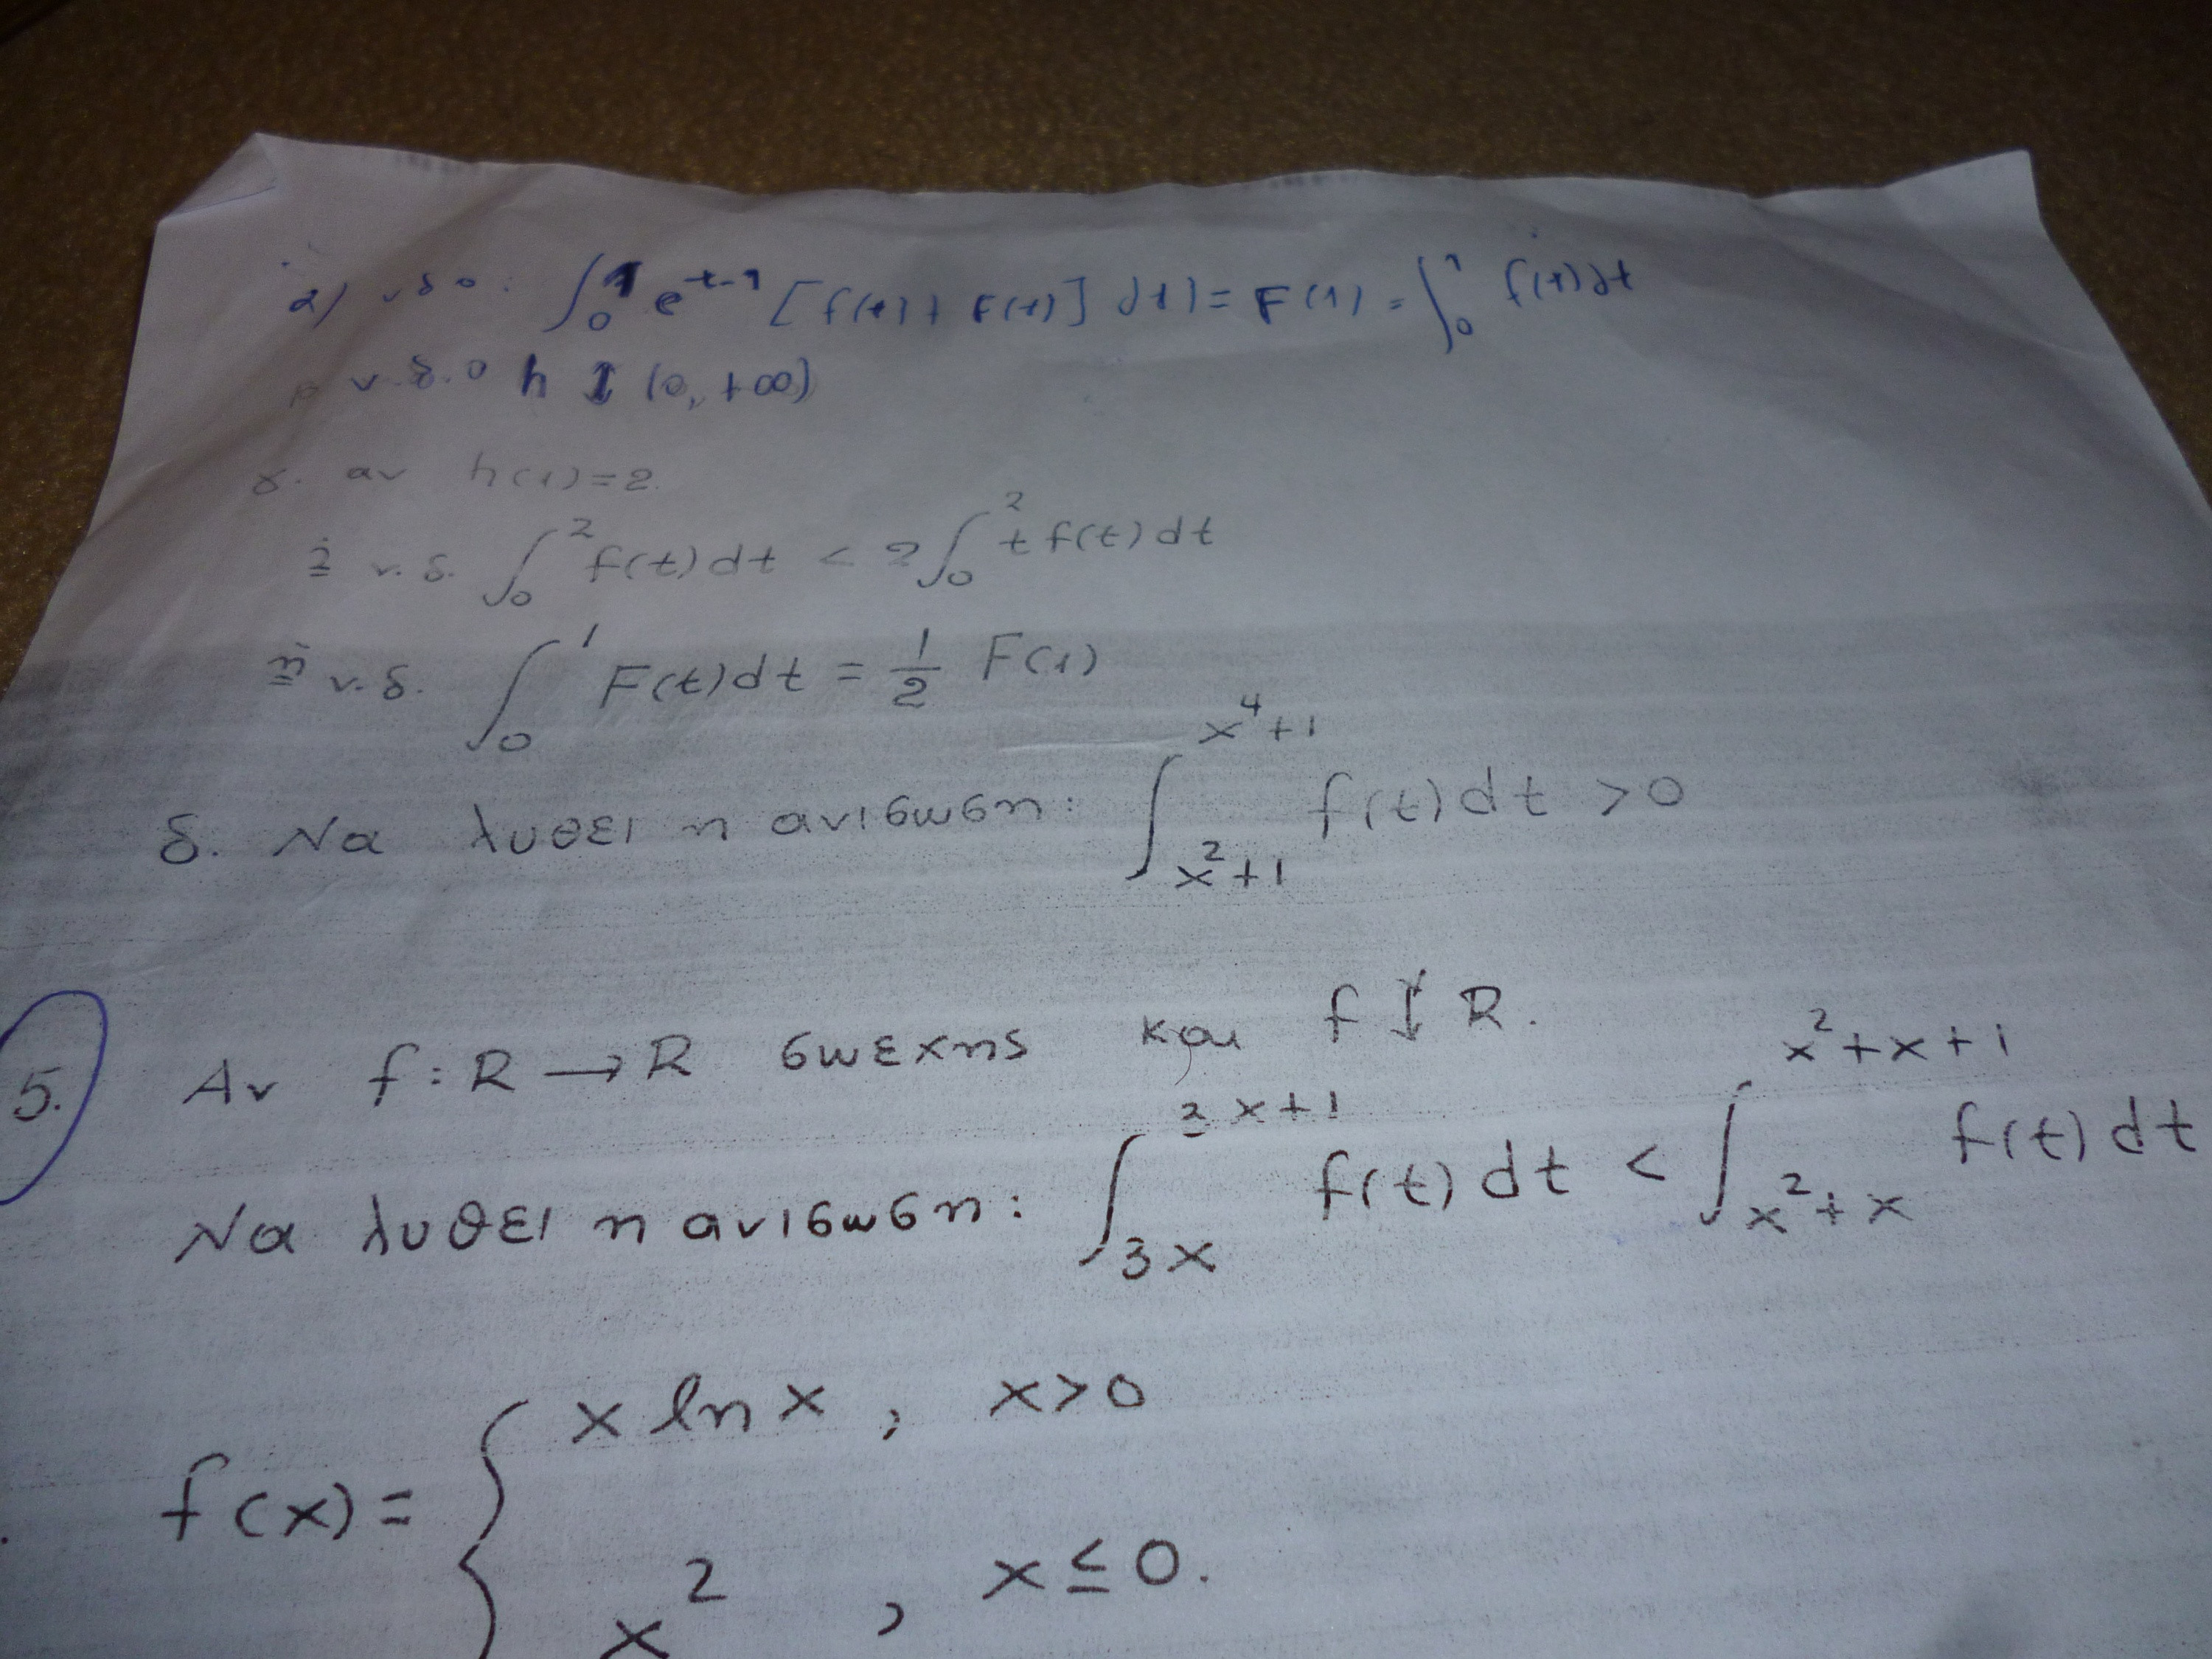 α) ν δ ο: ∫₀¹ e^{t-1} [f(t) + F(t)] dt) = F(1) = ∫₀¹ f(t) dt
β ν.δ.ο h ↓ (0, +∞)
γ. αν h(1)=2.
i ν.δ. ∫₀² f(t)dt < 2∫₀² t f(t)dt
ii ν.δ. ∫₀¹ F(t)dt = 1/2 F(1)
δ. Να λυθει η ανισωση: ∫_{x²+1}^{x⁴+1} f(t)dt >0
5. Αν f: R → R συνεχης και f ↓ R.
Να λυθει η ανισωση: ∫_{3x}^{3x+1} f(t)dt < ∫_{x²+x}^{x²+x+1} f(t)dt
f(x) = { x ln x , x>0
x² , x≤0.